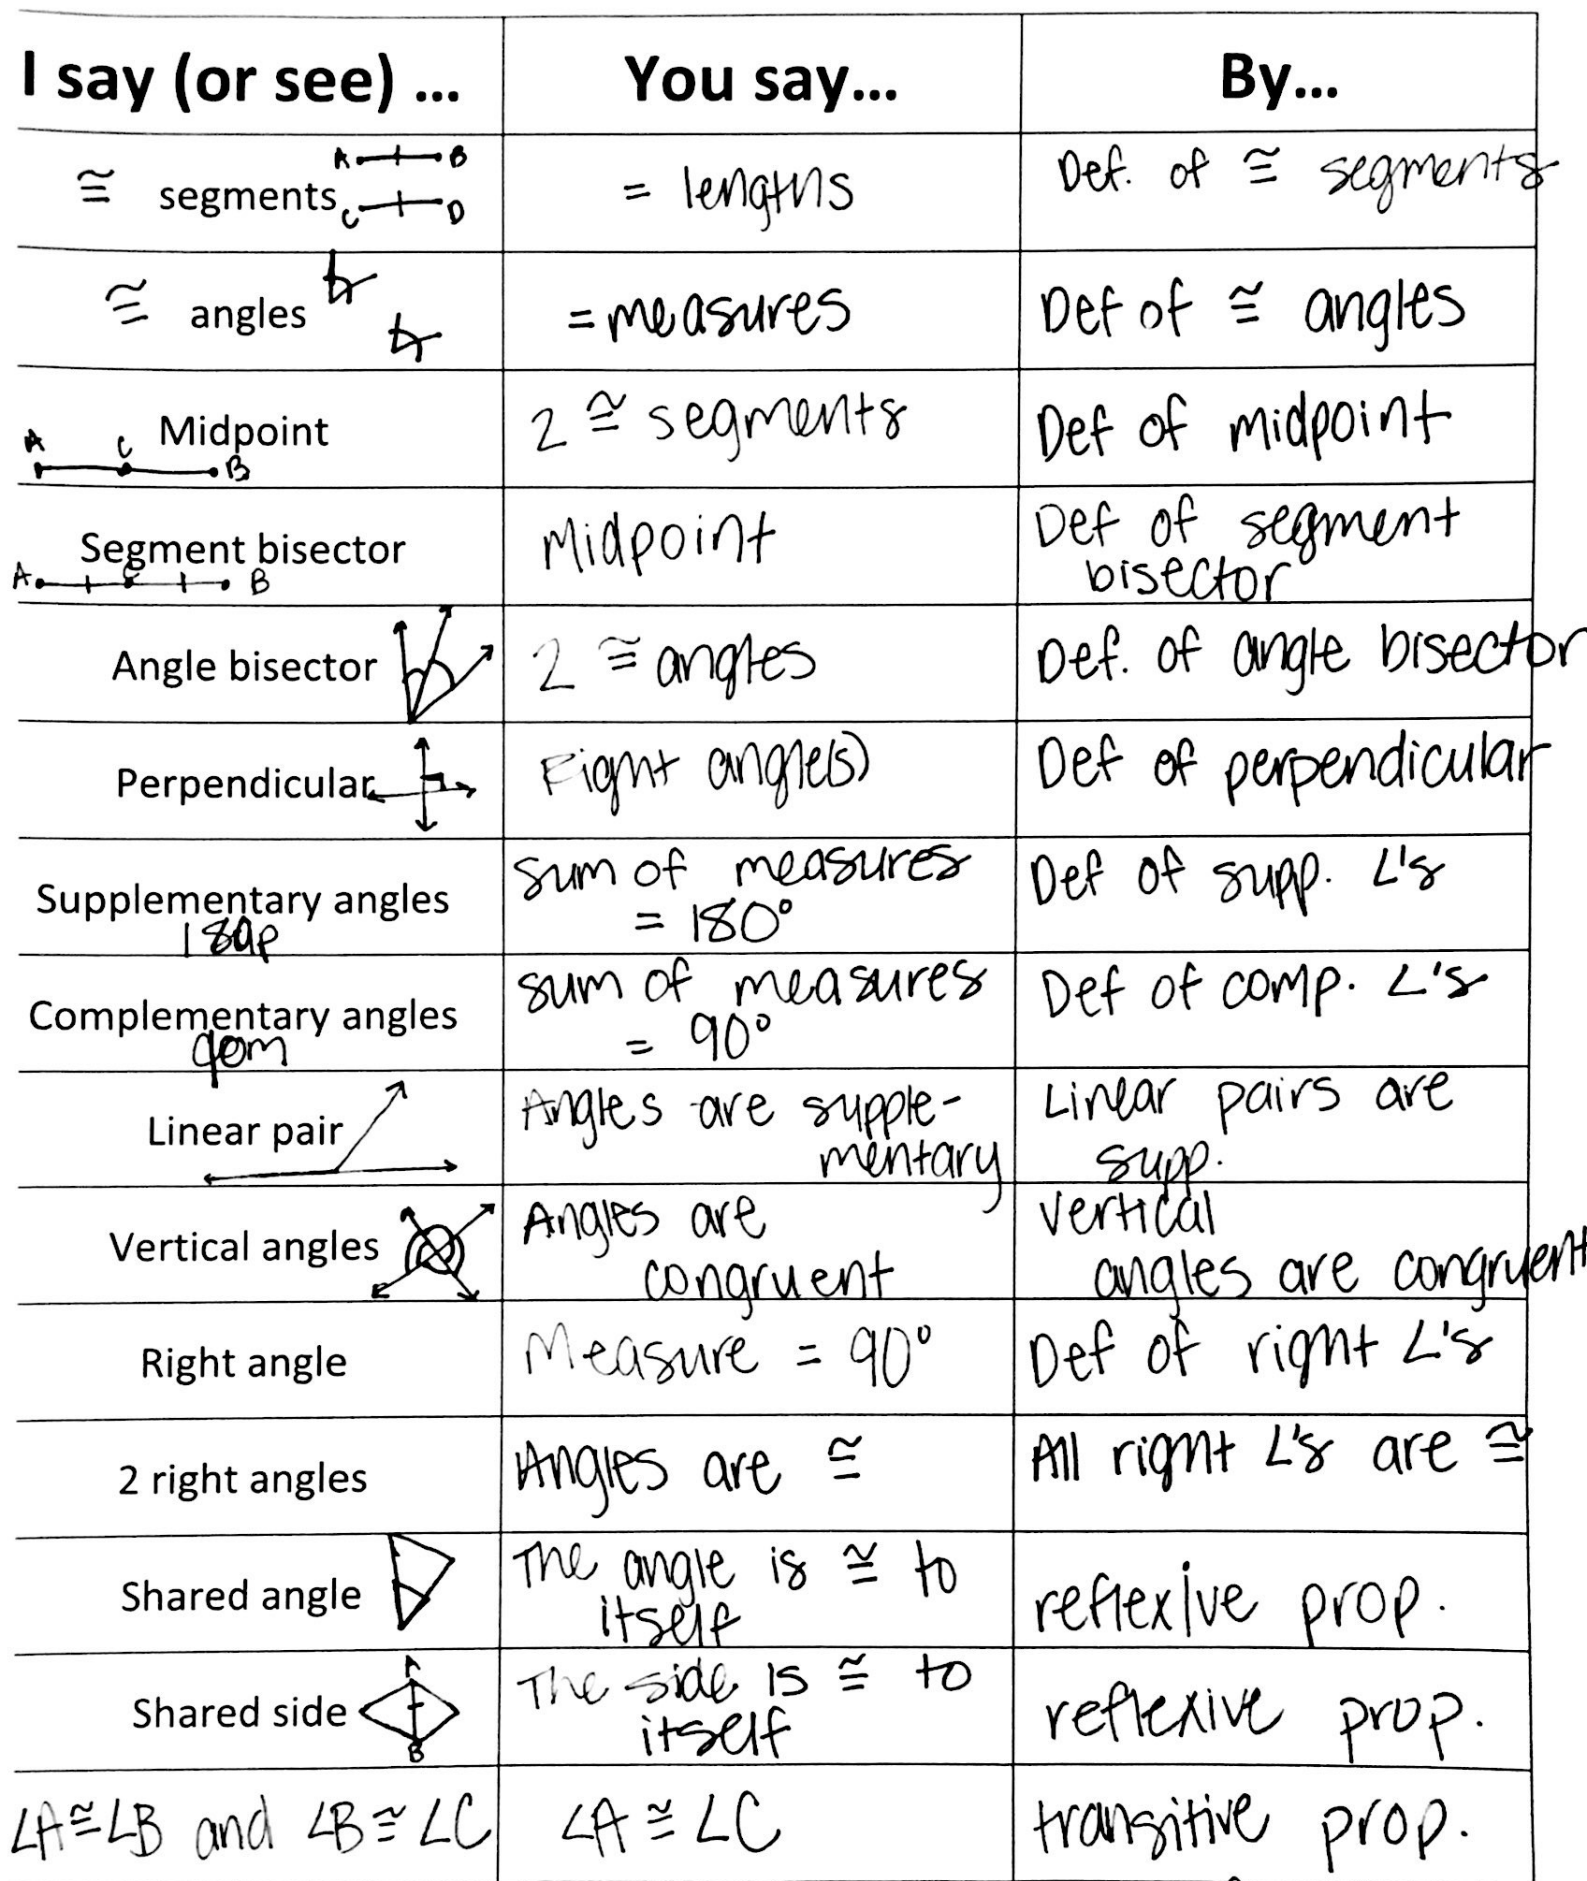 I say (or see) ... You say... By...
≅ segments A B C D = lengths Def. of ≅ segments
≅ angles = measures Def of ≅ angles
Midpoint A C B 2 ≅ segments Def of midpoint
Segment bisector A C B Midpoint Def of segment
bisector
Angle bisector 2 ≅ angles Def. of angle bisector
Perpendicular Right angle(s) Def of perpendicular
Supplementary angles sum of measures Def of supp. ∠'s
180p = 180°
Complementary angles sum of measures Def of comp. ∠'s
90m = 90°
Linear pair Angles are supple- Linear pairs are
mentary supp.
Vertical angles Angles are vertical
congruent angles are congruent
Right angle Measure = 90° Def of right ∠'s
2 right angles Angles are ≅ All right ∠'s are ≅
Shared angle The angle is ≅ to reflexive prop.
itself
Shared side A B The side is ≅ to reflexive prop.
itself
∠A≅∠B and ∠B≅∠C ∠A≅∠C transitive prop.